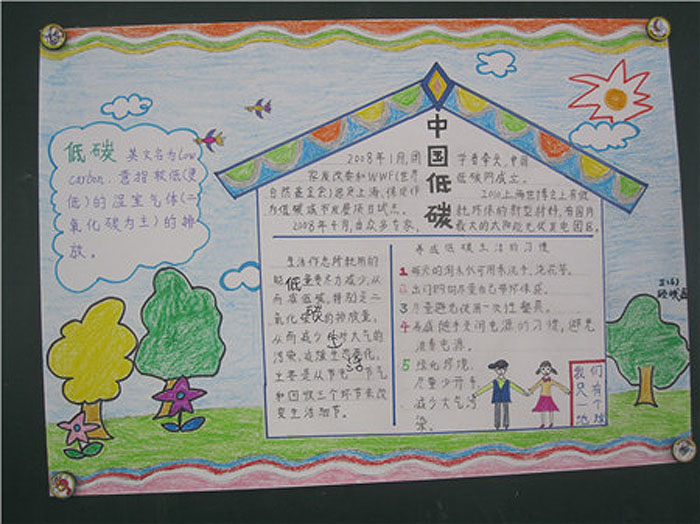 低碳 英文名为low
carbon. 意指较低(更
低)的温室气体(二
氧化碳为主)的排
放。
中国低碳
2008年1月,国
家发改委和WWF(世界
自然基金会)选定上海、保定作
为低碳城市发展项目试点。
2008年4月,由众多专家、
学者牵头,中国
低碳网成立。
2010上海世博会上有低
耗环保的新型材料,有国内
最大的太阳能光伏发电园区。
低碳生活
生活作息所耗用的
能量要尽力减少,从
而降低碳,特别是二
氧化碳的排放量,
从而减少对大气的
污染,减缓生态恶化,
主要是从节电 节气
和回收三个环节来改
变生活细节。
养成低碳生活的习惯
1 每天的淘米水可用来洗手、浇花等。
2 出门购物尽量自己带环保袋。
3 尽量避免使用一次性餐具。
4 养成随手关闭电源的习惯,避免
浪费电源。
5 绿化环境,
尽量少开车,
减少大气污
染。
我们
只有
一个
地球